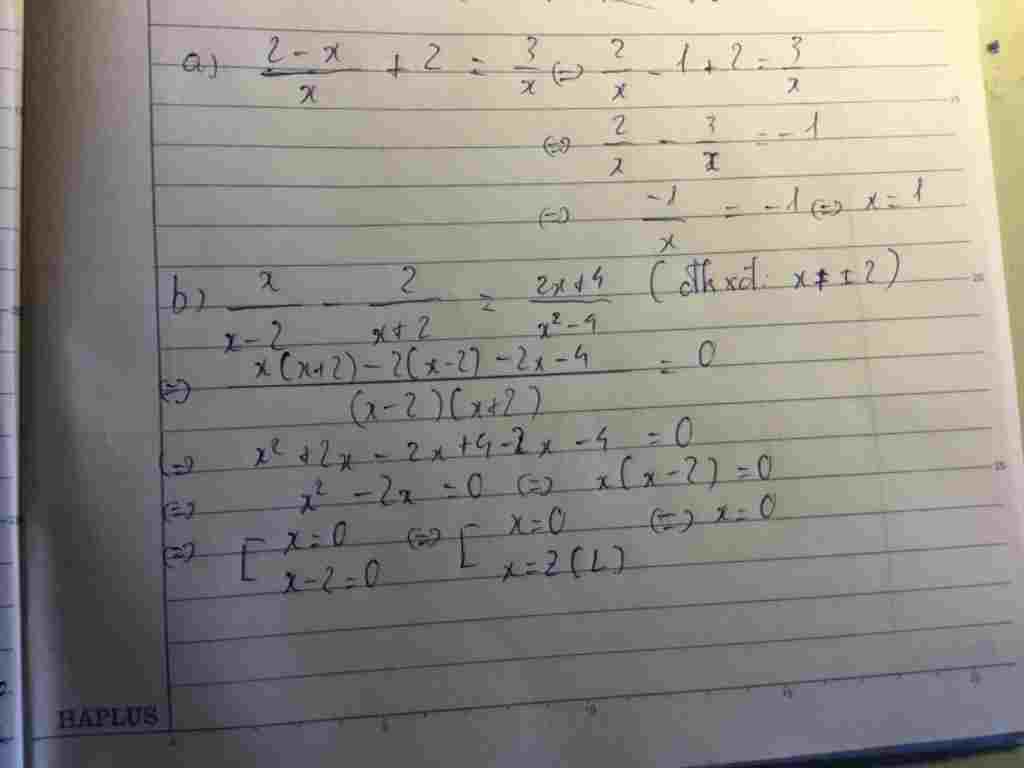 a) (2-x)/x + 2 = 3/x ⇔ 2/x - 1 + 2 = 3/x
⇔ 2/x - 3/x = -1
⇔ -1/x = -1 ⇔ x = 1
b) x/(x-2) - 2/(x+2) = (2x+4)/(x²-4) (đkxđ: x ≠ ±2)
⇔ (x(x+2) - 2(x-2) - 2x - 4)/((x-2)(x+2)) = 0
⇔ x² + 2x - 2x + 4 - 2x - 4 = 0
⇔ x² - 2x = 0 ⇔ x(x-2) = 0
⇔ [ x = 0 ⇔ [ x = 0 ⇔ x = 0
x - 2 = 0 x = 2 (L)
HAPLUS